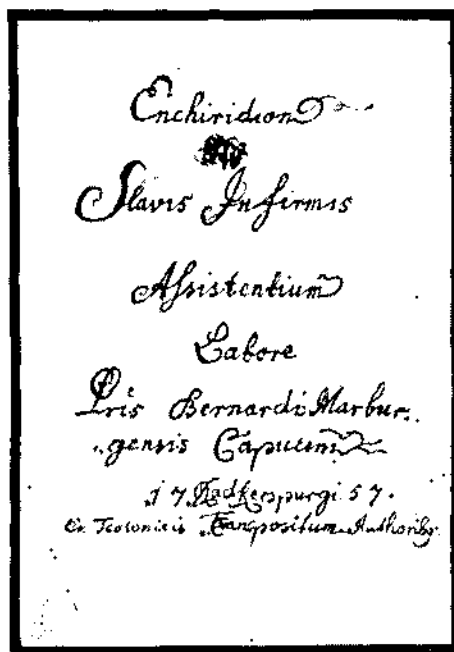 Enchiridion
Slavis Infirmis
Assistentium
Labore
Pris Bernardi Marbur-
gensis Capucini
17 Radkerspurgi 57.
Ex Teotonicis Transpositum Authoribꝯ